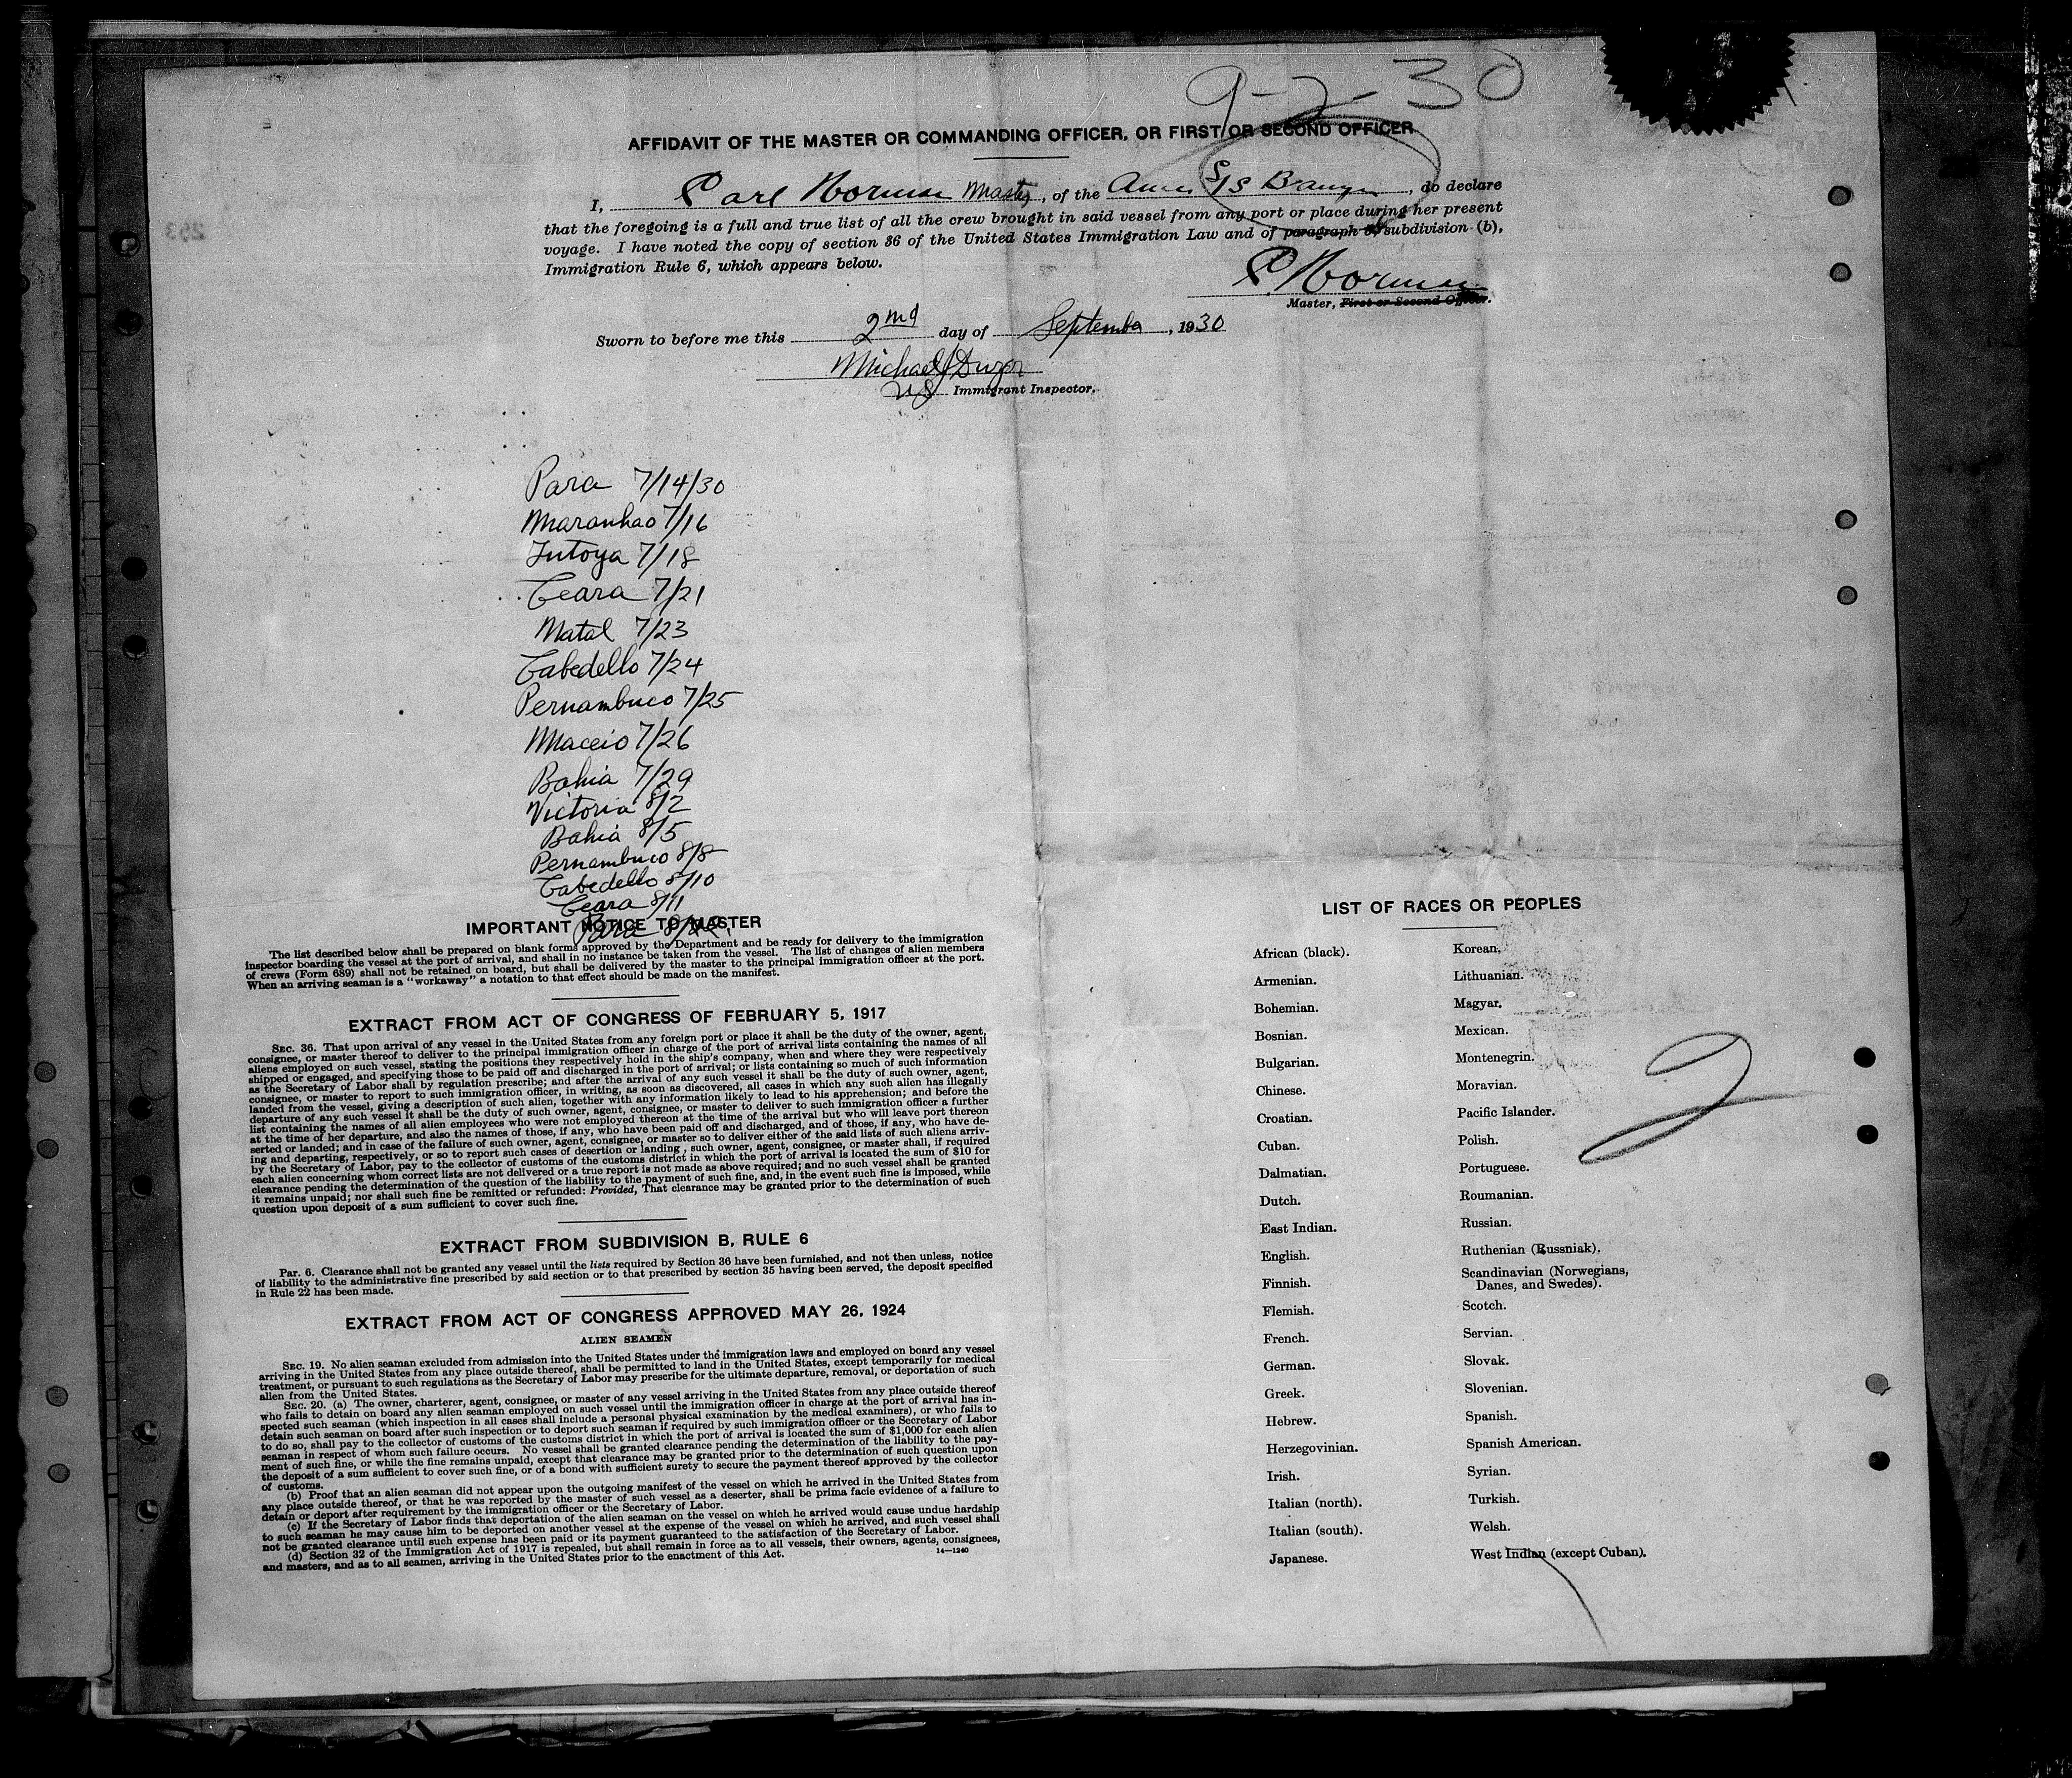 9-2-30
AFFIDAVIT OF THE MASTER OR COMMANDING OFFICER, OR FIRST OR SECOND OFFICER
I, Carl Master, of the Amer S/S, do declare
that the foregoing is a full and true list of all the crew brought in said vessel from any port or place during her present
voyage. I have noted the copy of section 36 of the United States Immigration Law and of paragraph 6, subdivision (b),
Immigration Rule 6, which appears below.
Master, First or Second Officer.
Sworn to before me this 2nd day of September, 1930
Michael
US Immigrant Inspector.
Para 7/14/30
Maranhao 7/16
Tutoya 7/18
Ceara 7/21
Natal 7/23
Cabedello 7/24
Pernambuco 7/25
Maceio 7/26
Bahia 7/29
Victoria 8/2
Bahia 8/5
Pernambuco 8/8
Cabedello 8/10
Ceara 8/11
Para
IMPORTANT NOTICE TO MASTER
The list described below shall be prepared on blank forms approved by the Department and be ready for delivery to the immigration
inspector boarding the vessel at the port of arrival, and shall in no instance be taken from the vessel. The list of changes of alien members
of crews (Form 689) shall not be retained on board, but shall be delivered by the master to the principal immigration officer at the port.
When an arriving seaman is a "workaway" a notation to that effect should be made on the manifest.
EXTRACT FROM ACT OF CONGRESS OF FEBRUARY 5, 1917
SEC. 36. That upon arrival of any vessel in the United States from any foreign port or place it shall be the duty of the owner, agent,
consignee, or master thereof to deliver to the principal immigration officer in charge of the port of arrival lists containing the names of all
aliens employed on such vessel, stating the positions they respectively hold in the ship's company, when and where they were respectively
shipped or engaged, and specifying those to be paid off and discharged in the port of arrival; or lists containing so much of such information
as the Secretary of Labor shall by regulation prescribe; and after the arrival of any such vessel it shall be the duty of such owner, agent,
consignee, or master to report to such immigration officer, in writing, as soon as discovered, all cases in which any such alien has illegally
landed from the vessel, giving a description of such alien, together with any information likely to lead to his apprehension; and before the
departure of any such vessel it shall be the duty of such owner, agent, consignee, or master to deliver to such immigration officer a further
list containing the names of all alien employees who were not employed thereon at the time of the arrival but who will leave port thereon
at the time of her departure, and also the names of those, if any, who have been paid off and discharged, and of those, if any, who have de-
serted or landed; and in case of the failure of such owner, agent, consignee, or master so to deliver either of the said lists of such aliens arriv-
ing and departing, respectively, or so to report such cases of desertion or landing, such owner, agent, consignee, or master shall, if required
by the Secretary of Labor, pay to the collector of customs of the customs district in which the port of arrival is located the sum of $10 for
each alien concerning whom correct lists are not delivered or a true report is not made as above required; and no such vessel shall be granted
clearance pending the determination of the question of the liability to the payment of such fine, and, in the event such fine is imposed, while
it remains unpaid; nor shall such fine be remitted or refunded: Provided, That clearance may be granted prior to the determination of such
question upon deposit of a sum sufficient to cover such fine.
EXTRACT FROM SUBDIVISION B, RULE 6
Par. 6. Clearance shall not be granted any vessel until the lists required by Section 36 have been furnished, and not then unless, notice
of liability to the administrative fine prescribed by said section or to that prescribed by section 35 having been served, the deposit specified
in Rule 22 has been made.
EXTRACT FROM ACT OF CONGRESS APPROVED MAY 26, 1924
ALIEN SEAMEN
SEC. 19. No alien seaman excluded from admission into the United States under the immigration laws and employed on board any vessel
arriving in the United States from any place outside thereof, shall be permitted to land in the United States, except temporarily for medical
treatment, or pursuant to such regulations as the Secretary of Labor may prescribe for the ultimate departure, removal, or deportation of such
alien from the United States.
SEC. 20. (a) The owner, charterer, agent, consignee, or master of any vessel arriving in the United States from any place outside thereof
who fails to detain on board any alien seaman employed on such vessel until the immigration officer in charge at the port of arrival has in-
spected such seaman (which inspection in all cases shall include a personal physical examination by the medical examiners), or who fails to
detain such seaman on board after such inspection or to deport such seaman if required by such immigration officer or the Secretary of Labor
to do so, shall pay to the collector of customs of the customs district in which the port of arrival is located the sum of $1,000 for each alien
seaman in respect of whom such failure occurs. No vessel shall be granted clearance pending the determination of the liability to the pay-
ment of such fine, or while the fine remains unpaid, except that clearance may be granted prior to the determination of such question upon
the deposit of a sum sufficient to cover such fine, or of a bond with sufficient surety to secure the payment thereof approved by the collector
of customs.
(b) Proof that an alien seaman did not appear upon the outgoing manifest of the vessel on which he arrived in the United States from
any place outside thereof, or that he was reported by the master of such vessel as a deserter, shall be prima facie evidence of a failure to
detain or deport after requirement by the immigration officer or the Secretary of Labor.
(c) If the Secretary of Labor finds that deportation of the alien seaman on the vessel on which he arrived would cause undue hardship
to such seaman he may cause him to be deported on another vessel at the expense of the vessel on which he arrived, and such vessel shall
not be granted clearance until such expense has been paid or its payment guaranteed to the satisfaction of the Secretary of Labor.
(d) Section 32 of the Immigration Act of 1917 is repealed, but shall remain in force as to all vessels, their owners, agents, consignees,
and masters, and as to all seamen, arriving in the United States prior to the enactment of this Act.
14—1240
LIST OF RACES OR PEOPLES
African (black).
Armenian.
Bohemian.
Bosnian.
Bulgarian.
Chinese.
Croatian.
Cuban.
Dalmatian.
Dutch.
East Indian.
English.
Finnish.
Flemish.
French.
German.
Greek.
Hebrew.
Herzegovinian.
Irish.
Italian (north).
Italian (south).
Japanese.
Korean.
Lithuanian.
Magyar.
Mexican.
Montenegrin.
Moravian.
Pacific Islander.
Polish.
Portuguese.
Roumanian.
Russian.
Ruthenian (Russniak).
Scandinavian (Norwegians,
Danes, and Swedes).
Scotch.
Servian.
Slovak.
Slovenian.
Spanish.
Spanish American.
Syrian.
Turkish.
Welsh.
West Indian (except Cuban).
2